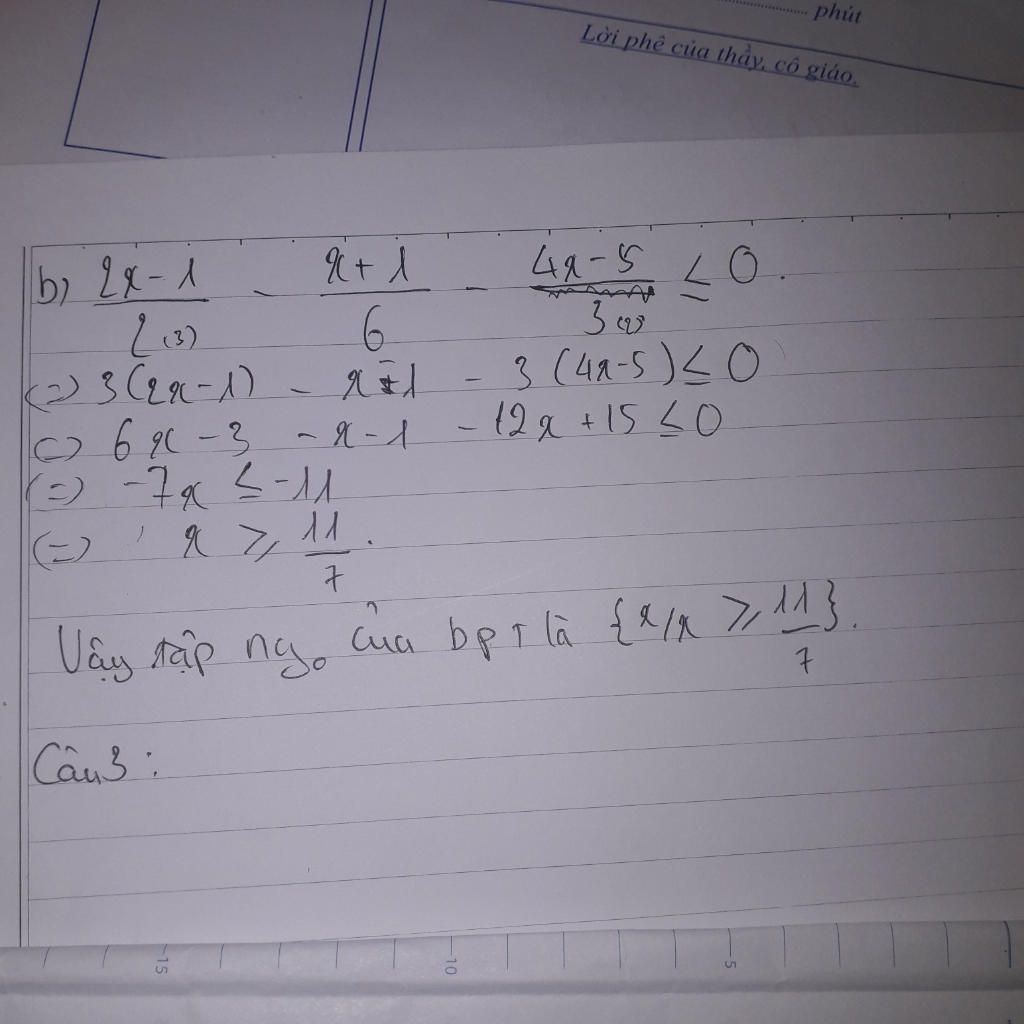 ................ phút
Lời phê của thầy, cô giáo.
b) (2x - 1)/(2 (3)) - (x + 1)/6 - (4x - 5)/(3 (2)) ≤ 0.
(=) 3(2x - 1) - x - 1 - 3(4x - 5) ≤ 0
(=) 6x - 3 - x - 1 - 12x + 15 ≤ 0
(=) -7x ≤ -11
(=) x ≥ 11/7.
Vậy tập ngo của bpT là {x/x ≥ 11/7}.
Câu 3:
15 10 5